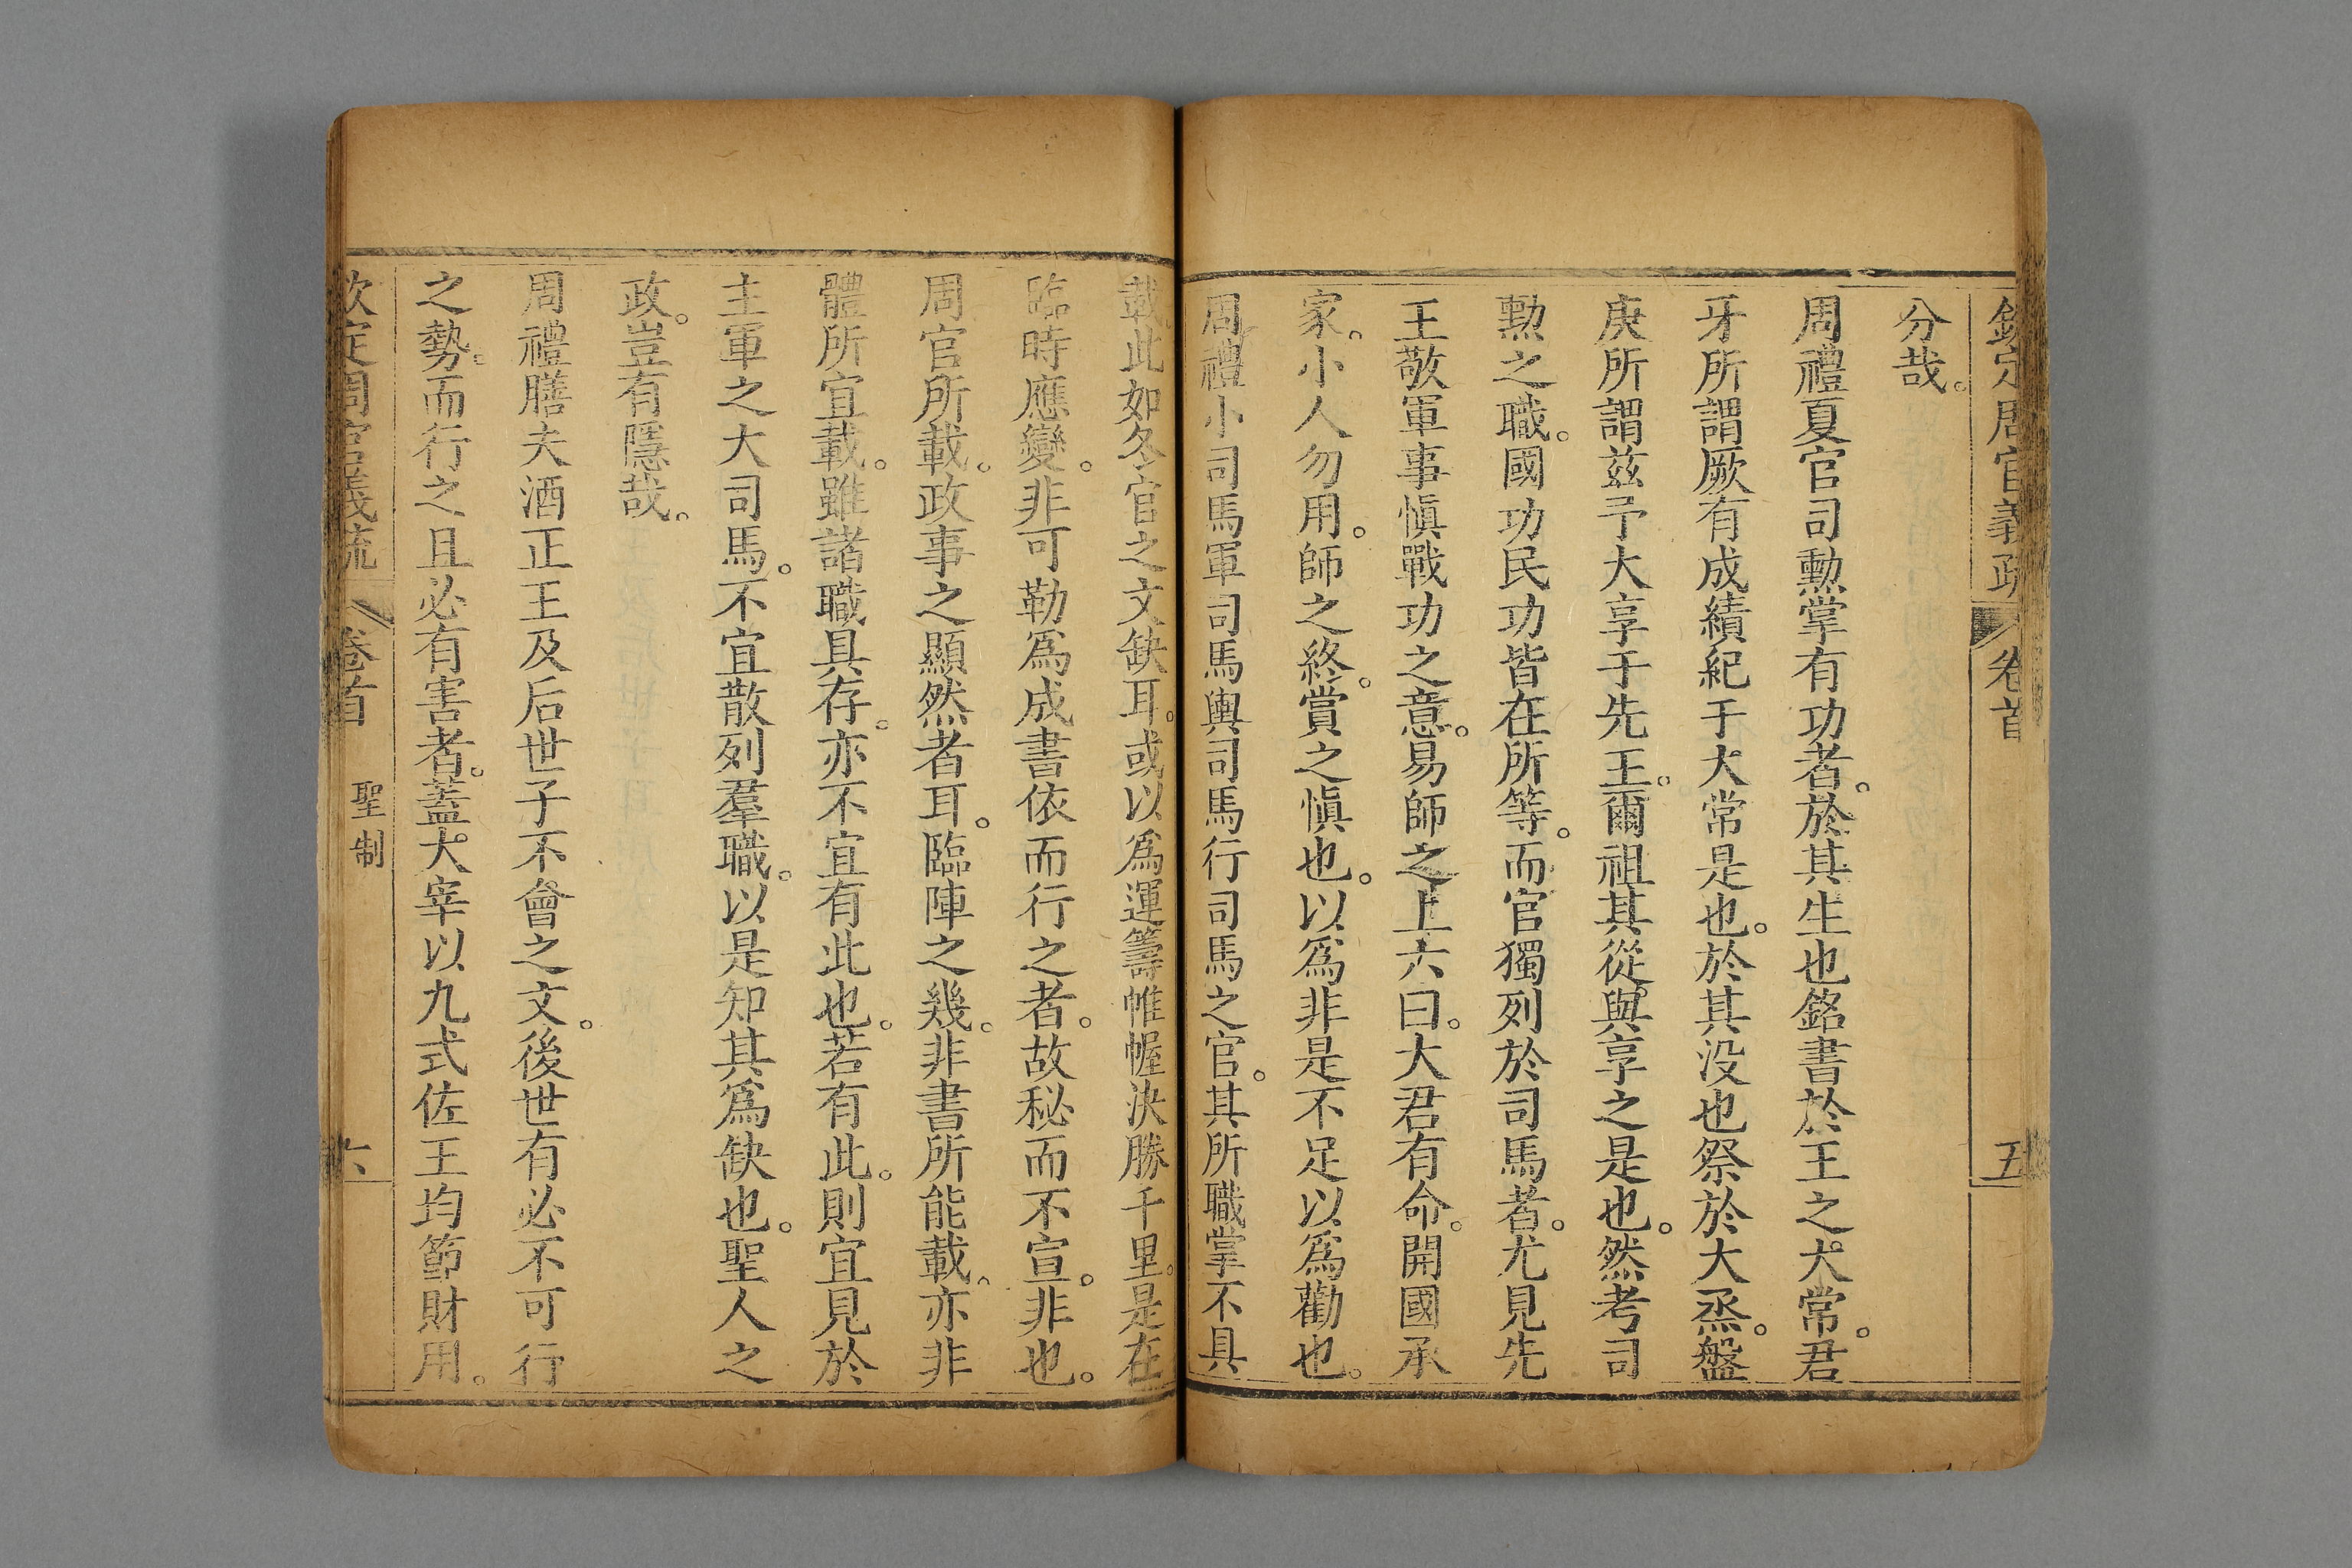 欽定周官義疏 卷首 五
分哉。
周禮夏官司勲掌有功者。於其生也銘書於王之大常。君
牙所謂厥有成績紀于大常是也。於其没也祭於大烝。盤
庚所謂兹予大享于先王。爾祖其從與享之是也。然考司
勲之職。國功民功皆在所等。而官獨列於司馬者。尤見先
王敬軍事愼戰功之意。易師之上六曰。大君有命。開國承
家。小人勿用。師之終。賞之愼也。以爲非是不足以爲勸也。
周禮小司馬軍司馬輿司馬行司馬之官。其所職掌不具
載。此如冬官之文缺耳。或以爲運籌帷幄決勝千里。是在
臨時應變。非可勒爲成書依而行之者。故秘而不宣。非也。
周官所載。政事之顯然者耳。臨陣之幾。非書所能載。亦非
體所宜載。雖諸職具存。亦不宜有此也。若有此。則宜見於
主軍之大司馬。不宜散列羣職。以是知其爲缺也。聖人之
政。豈有隱哉。
周禮膳夫酒正王及后世子不會之文。後世有必不可行
之勢。而行之且必有害者。蓋大宰以九式佐王均節財用。
欽定周官義疏 卷首 聖制 六